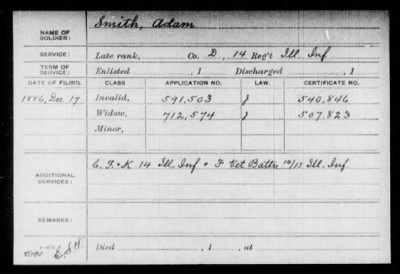 NAME OF SOLDIER: Smith, Adam
SERVICE: Late rank, Co. D, 14 Reg't Ill. Inf
TERM OF SERVICE: Enlisted , 1 Discharged , 1
DATE OF FILING. CLASS APPLICATION NO. LAW. CERTIFICATE NO.
1886, Dec 17 Invalid, 591,503 J 540,846
Widow, 712,574 J 507.823
Minor,
ADDITIONAL SERVICES: C, F & K 14 Ill, Inf & F Vet Battn 14/15 Ill. Inf.
REMARKS:
Died , 1 , at